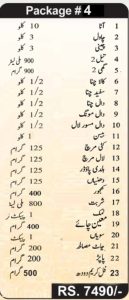 Package # 4
1 آٹا 10 کلو
2 چاول 3 کلو
3 چینی 3 کلو
4 تیل 2 900 ملی لیٹر
5 گھی 2 900 گرام
6 کالا چنا 1 کلو
7 سفید چنا 1 کلو
8 دال چنا 1 کلو
9 دال مونگ 1 کلو
10 دال مسور لال 1 کلو
11 بیسن 1 کلو
12 لال مرچ 125 گرام
13 لال مرچ 125 گرام
14 ہلدی پاؤڈر 125 گرام
15 دھنیاں 125 گرام
16 کھجور 400 گرام
17 شربت 800 ملی لیٹر
18 نمک 1 پیکٹ
19 معین چائے 400 گرام
20 سویاں 1 پیکٹ
21 چاٹ مصالحہ 200 گرام
22 پاپڑ 200 گرام
23 فل کریم دودھ 500 گرام
RS. 7490/-